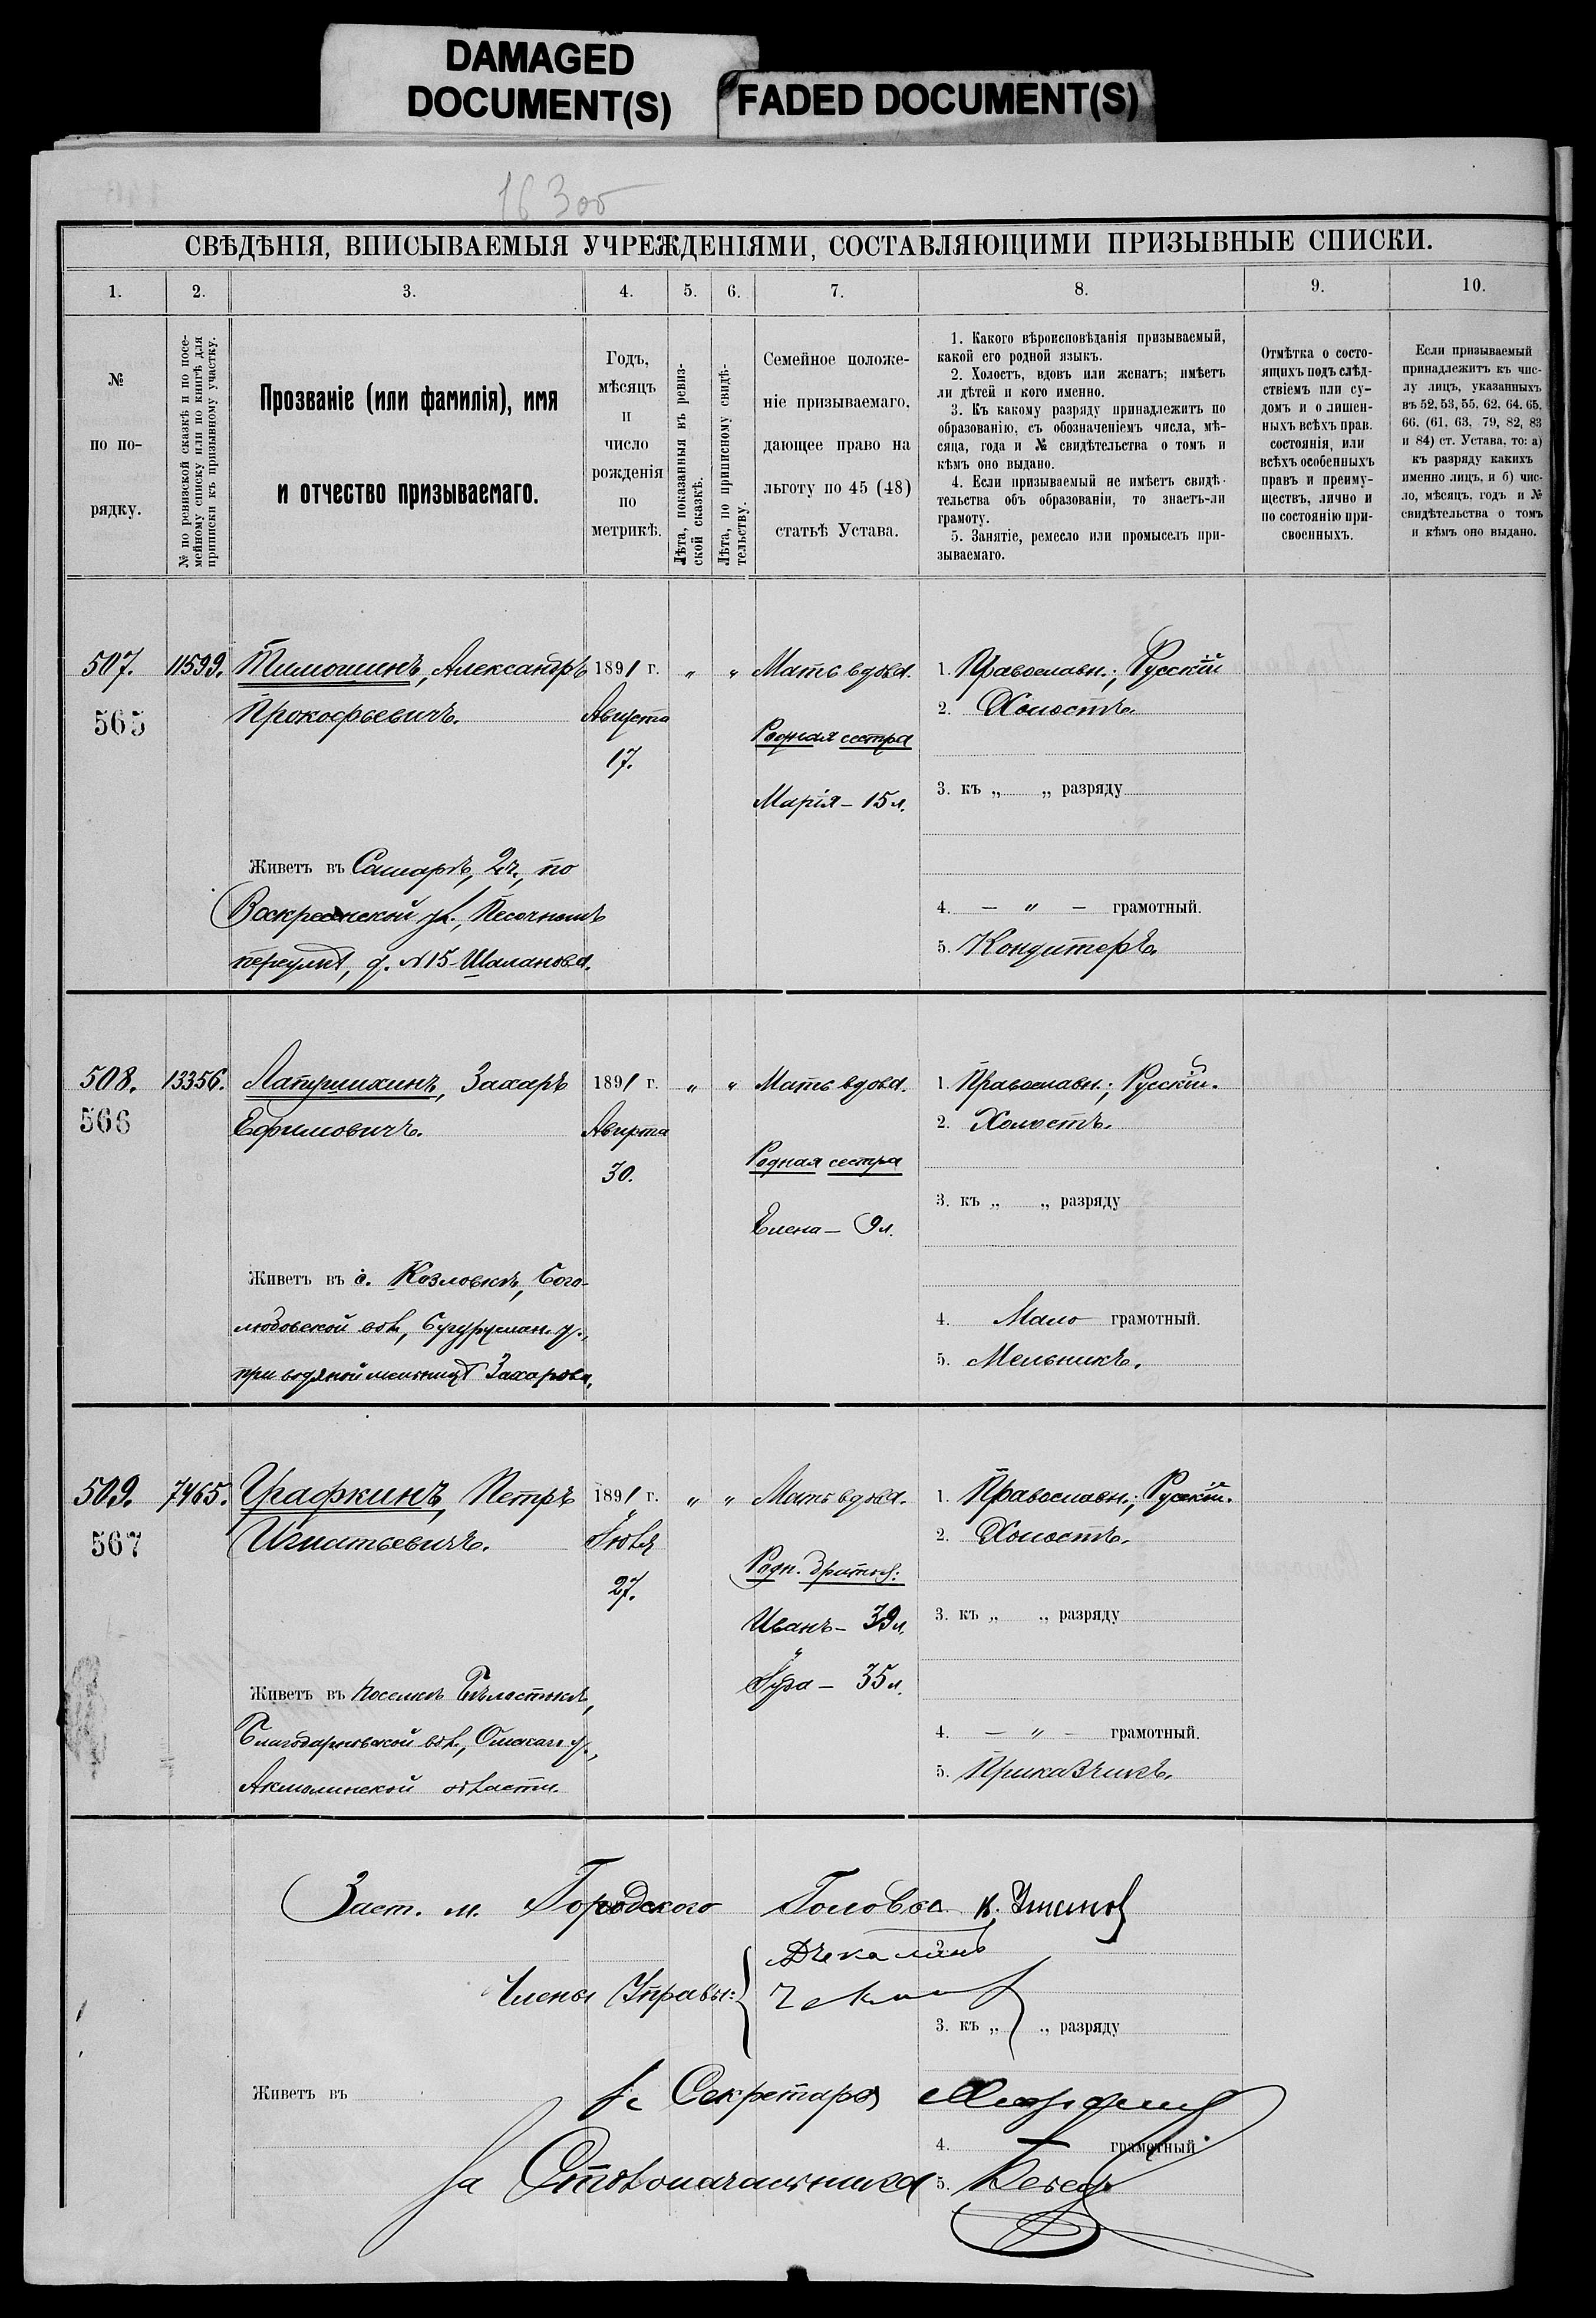 DAMAGED
DOCUMENT(S)
FADED DOCUMENT(S)
16 300
СВѢДѢНІЯ, ВПИСЫВАЕМЫЯ УЧРЕЖДЕНІЯМИ, СОСТАВЛЯЮЩИМИ ПРИЗЫВНЫЕ СПИСКИ.
1. 2. 3. 4. 5. 6. 7. 8. 9. 10.
№
по по-
рядку.
№ по ревизской сказкѣ и по посе-
мейному списку или по книгѣ для
приписки къ призывному участку.
Прозваніе (или фамилія), имя
и отчество призываемаго.
Годъ,
мѣсяцъ
и
число
рожденія
по
метрикѣ.
Лѣта, показанныя въ ревиз-
ской сказкѣ.
Лѣта, по приписному свидѣ-
тельству.
Семейное положе-
ніе призываемаго,
дающее право на
льготу по 45 (48)
статьѣ Устава.
1. Какого вѣроисповѣданія призываемый,
какой его родной языкъ.
2. Холостъ, вдовъ или женатъ; имѣетъ
ли дѣтей и кого именно.
3. Къ какому разряду принадлежитъ по
образованію, съ обозначеніемъ числа, мѣ-
сяца, года и № свидѣтельства о томъ и
кѣмъ оно выдано.
4. Если призываемый не имѣетъ свидѣ-
тельства объ образованіи, то знаетъ-ли
грамоту.
5. Занятіе, ремесло или промыселъ при-
зываемаго.
Отмѣтка о состо-
ящихъ подъ слѣд-
ствіемъ или су-
домъ и о лишен-
ныхъ всѣхъ прав.
состоянія, или
всѣхъ особенныхъ
правъ и преиму-
ществъ, лично и
по состоянію при-
своенныхъ.
Если призываемый
принадлежитъ къ чис-
лу лицъ, указанныхъ
въ 52, 53, 55, 62, 64, 65,
66, (61, 63, 79, 82, 83
и 84) ст. Устава, то: а)
къ разряду какихъ
именно лицъ, и б) чис-
ло, мѣсяцъ, годъ и №
свидѣтельства о томъ
и кѣмъ оно выдано.
507. 11599. Тимошинъ, Александръ 1891 г. „ „ Мать вдова. 1. Православн.; Русскій
565 Прокофьевичъ. Августа 2. Холостъ.
17. Родная сестра
Марія – 15 л. 3. къ „ „ разряду
Живетъ въ Самарѣ, 2 ч., по
Воскресенской ул., Песочномъ 4. — „ — грамотный.
переулкѣ, д. №15 Шаланова. 5. Кондитеръ.
508. 13356. Латушкинъ, Захаръ 1891 г. „ „ Мать вдова. 1. Православн.; Русскій.
566 Ефимовичъ. Августа 2. Холостъ.
30. Родная сестра
3. къ „ „ разряду
Елена – 9 л.
Живетъ въ с. Козловкѣ, Бого-
любовской вол., Бугуруслан. у., 4. Мало грамотный.
при водяной мельницѣ Захарова. 5. Мельникъ.
509. 7465. Графкинъ, Петръ 1891 г. „ „ Мать вдова. 1. Православн.; Русскій.
567 Игнатьевичъ. Іюля 2. Холостъ.
27. Родн. братья:
Иванъ – 39 л. 3. къ „ „ разряду
Живетъ въ поселкѣ Бѣлостокѣ, – 35 л.
Благодаровской вол., Омскаго у., 4. — „ — грамотный.
Акмолинской области. 5. Приказчикъ.
Заст. м. Городского Головы
Члены Управы:
3. къ „ „ разряду
Живетъ въ Секретаря
4. грамотный
За Столоначальника 5.